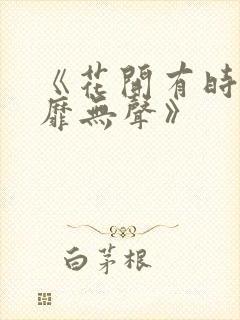 《花開有時
靡無聲》
白茅根